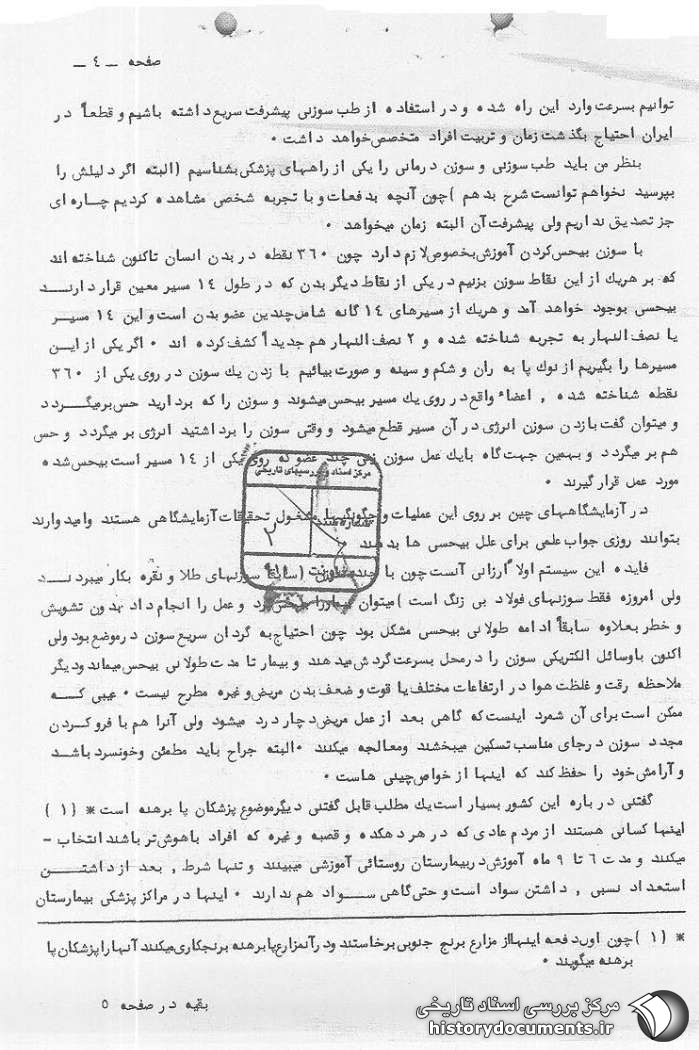 صفحه ــ ٤ ــ
توانیم بسرعت وارد این راه شده و در استفاده از طب سوزنی پیشرفت سریع داشته باشیم و قطعاً در
ایران احتیاج بگذشت زمان و تربیت افراد متخصص خواهد داشت ۰
بنظر من باید طب سوزنی و سوزن درمانی را یکی از راههای پزشکی بشناسیم (البته اگر دلیلش را
بپرسید نخواهم توانست شرح بدهم ) چون آنچه بدفعات و با تجربه شخصی مشاهده کردیم چاره ای
جز تصدیق نداریم ولی پیشرفت آن البته زمان میخواهد ۰
با سوزن بیحس کردن آموزش بخصوص لازم دارد چون ۳٦۰ نقطه در بدن انسان تاکنون شناخته اند
که بر هریك از این نقاط سوزن بزنیم در یکی از نقاط دیگر بدن که در طول ۱٤ مسیر معین قرار دارنــد
بیحسی بوجود خواهد آمد و هریك از مسیرهای ۱٤ گانه شامل چندین عضو بدن است و این ۱٤ مسیــر
یا نصف النهار به تجربه شناخته شده و ۲ نصف النهار هم جدیداً کشف کرده اند ۰ اگر یکی از ایــن
مسیرها را بگیریم از نوك پا به ران و شکم و سینه و صورت بیائیم با زدن یك سوزن در روی یکی از ۳٦۰
نقطه شناخته شده , اعضاء واقع در روی یك مسیر بیحس میشوند و سوزن را که بردارید حس برمیگــردد
و میتوان گفت بازدن سوزن انرژی در آن مسیر قطع میشود و وقتی سوزن را برداشتید انرژی بر میگردد و حس
هم بر میگردد و بهمین جهت گاه بایك عمل سوزن زنی چند عضو که روی یکی از ۱٤ مسیر است بیحس شده
مورد عمل قرار گیرند ۰
در آزمایشگاههای چین بر روی این عملیات و چگونگی‌ها مشغول تحقیقات آزمایشگاهی هستند و امیدوارند
بتوانند روزی جواب علمی برای علل بیحسی ها بدهند ۰
فایده این سیستم اولاً ارزانی آنست چون با چند سوزن (سابقاً سوزنهای طلا و نقره بکار میبردنــد
ولی امروزه فقط سوزنهای فولاد بی زنگ است ) میتوان بیمار را بیحس کرد و عمل را انجام داد بدون تشویش
و خطر بعلاوه سابقاً ادامه طولانی بیحسی مشکل بود چون احتیاج به گردان سریع سوزن در موضع بود ولی
اکنون باوسائل الکتریکی سوزن را در محل بسرعت گردش میدهند و بیمار تا مدت طولانی بیحس میماند و دیگر
ملاحظه رقت و غلظت هوا در ارتفاعات مختلف یا قوت و ضعف بدن مریض و غیره مطرح نیست ۰ عیبی کــه
ممکن است برای آن شمرد اینست که گاهی بعد از عمل مریض دچار درد میشود ولی آنرا هم با فرو کــردن
مجدد سوزن در جای مناسب تسکین میبخشند و معالجه میکنند ۰ البته جراح باید مطمئن و خونسرد باشــد
و آرامش خود را حفظ کند که اینها از خواص چینی هاست ۰
گفتنی درباره این کشور بسیار است یك مطلب قابل گفتنی دیگر موضوع پزشکان پا برهنه است * (۱)
اینها کسانی هستند از مردم عادی که در هر دهکده و قصبه و غیره که افراد باهوش تر باشند انتخاب -
میکنند و مدت ٦ تا ۹ ماه آموزش در بیمارستان روستائی آموزشی میبینند و تنها شرط , بعد از داشتــن
استعداد نسبی , داشتن سواد است و حتی گاهی ســواد هم ندارند ۰ اینها در مراکز پزشکی بیمارستان
* (۱) چون اولن دفعه اینها از مزارع برنج جنوبی برخاستند و در آنمزارع پا برهنه برنجکاری میکنند آنها را پزشکان پا
برهنه میگویند ۰
بقیه در صفحه ۵
مرکز اسناد و بررسیهای تاریخی
۲
مرکز بررسی اسناد تاریخی
historydocuments.ir